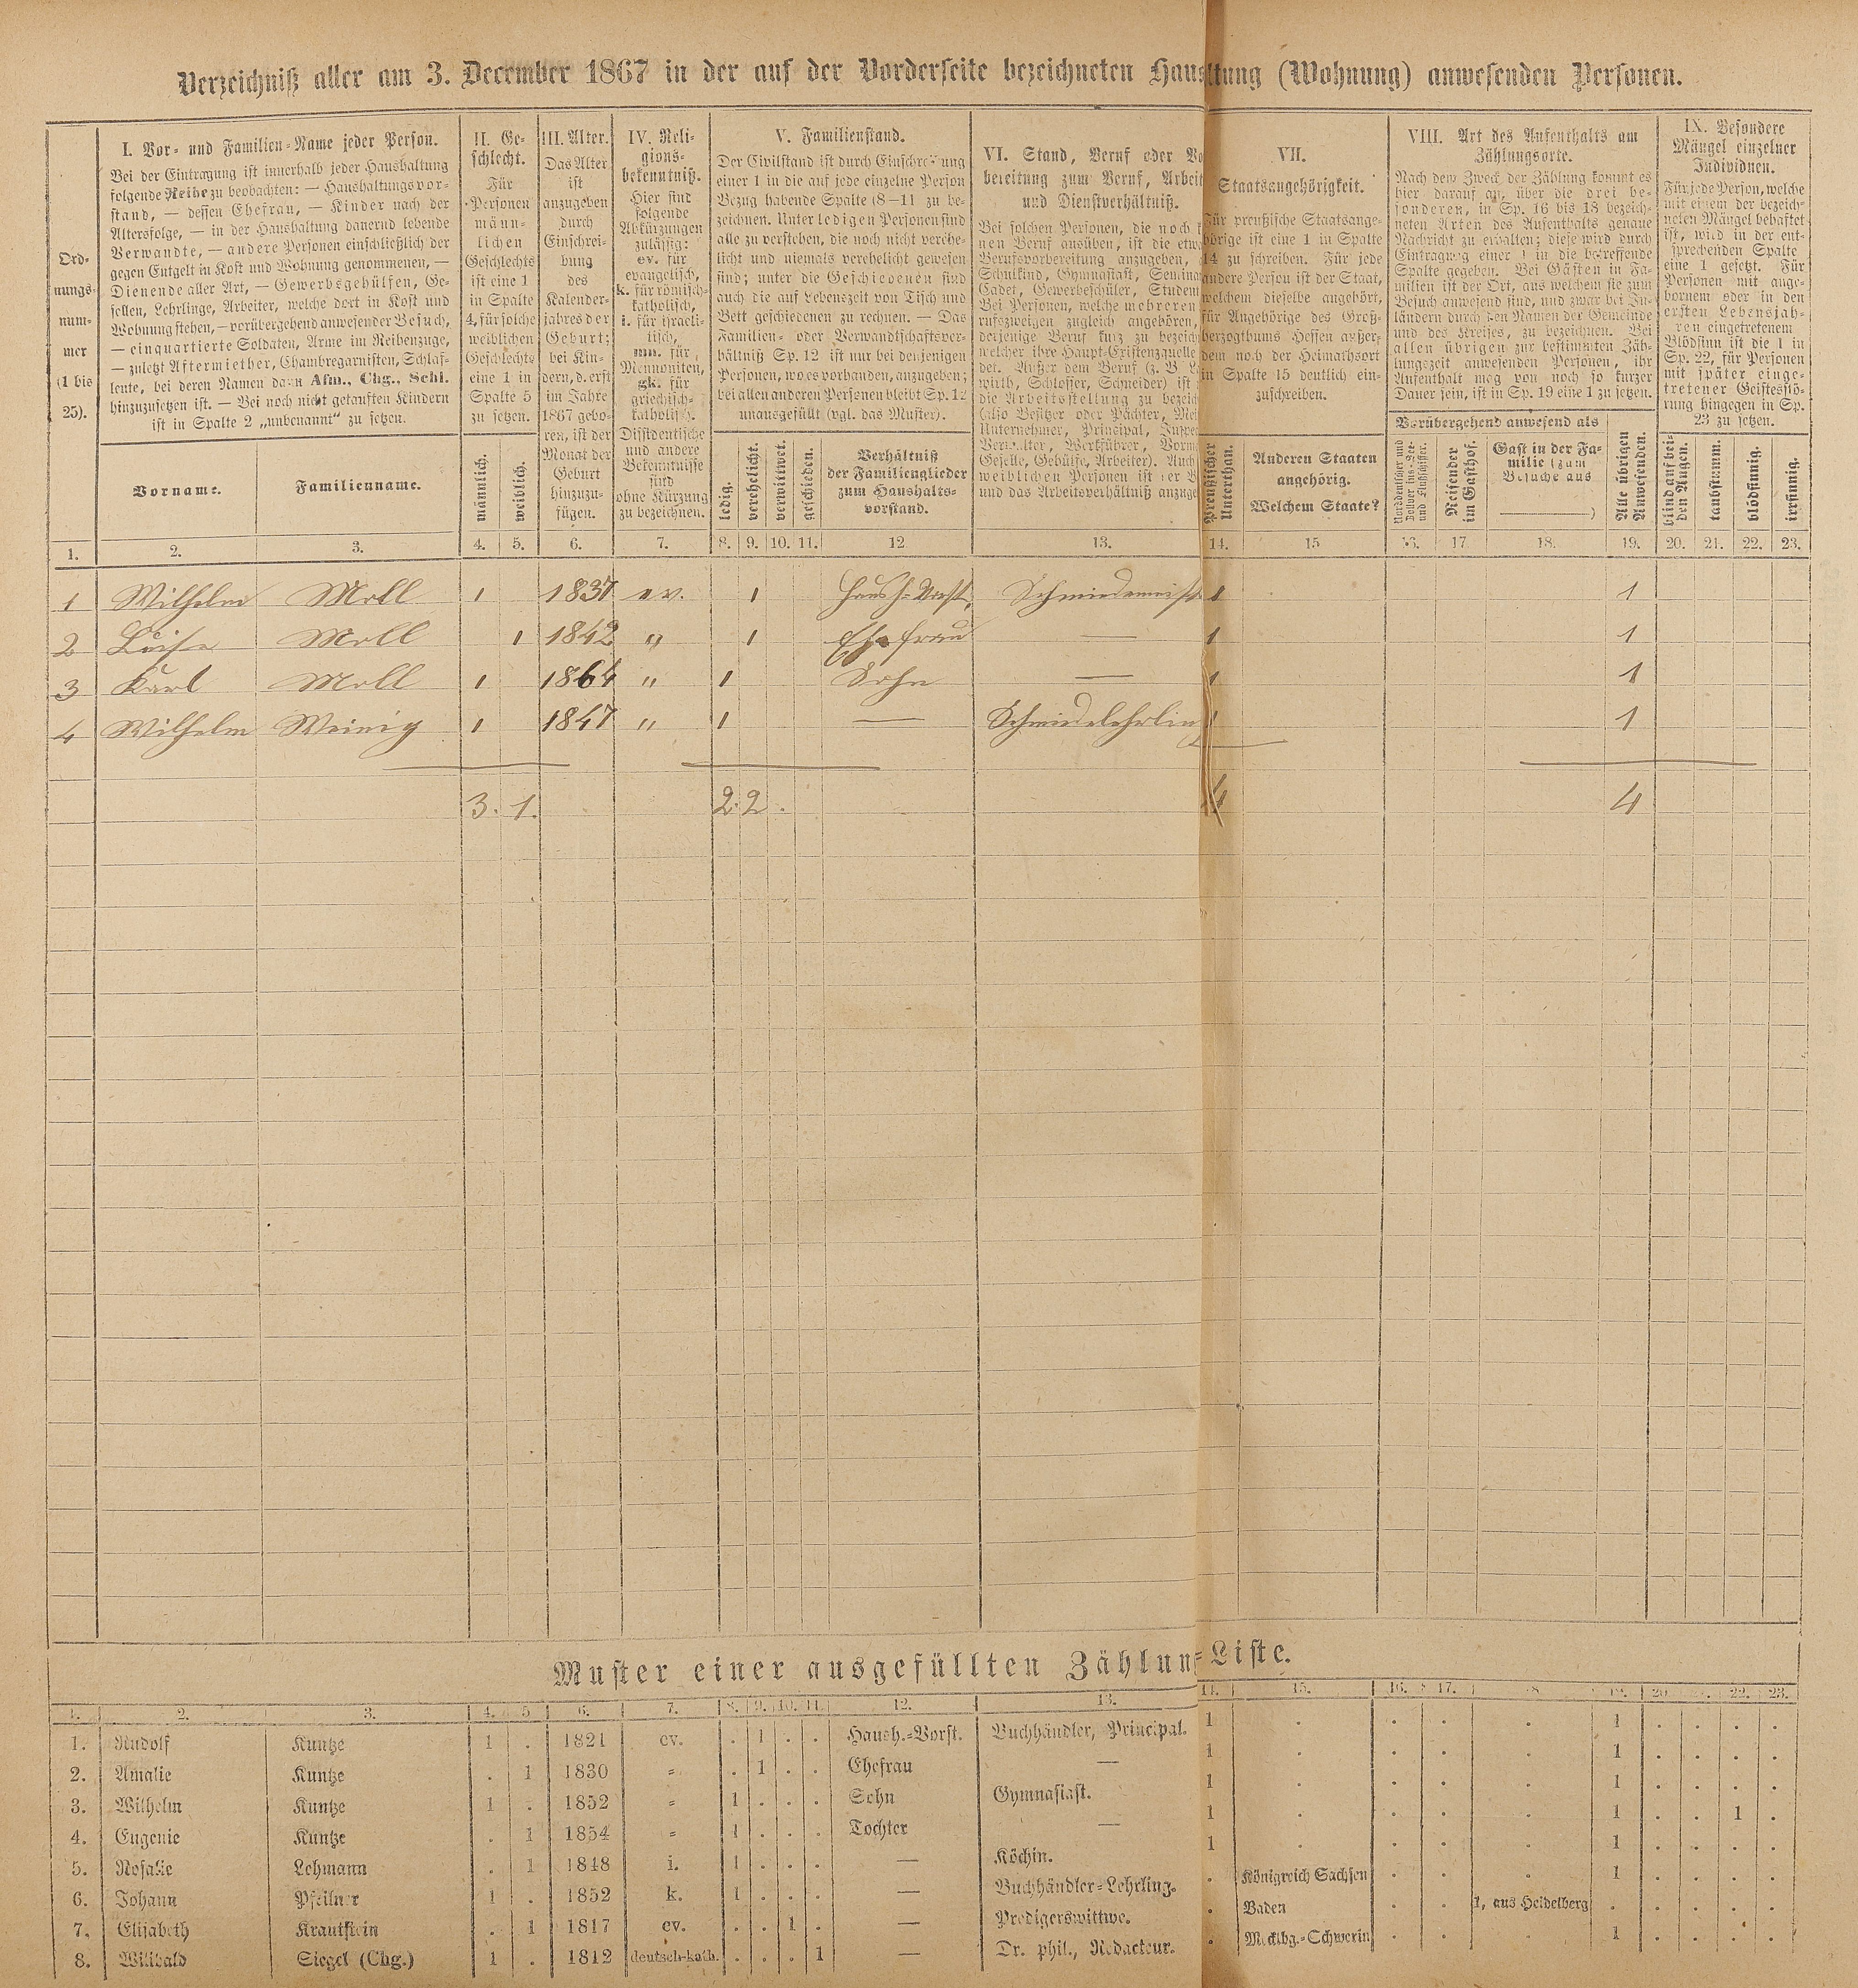 Verzeichniß aller am 3. December 1867 in der auf der Vorderseite bezeichneten Haushaltung (Wohnung) anwesenden Personen.
Ord-
nungs-
num-
mer
(1 bis
25).
I. Vor- und Familien-Name jeder Person.
Bei der Eintragung ist innerhalb jeder Haushaltung
folgende Reihe zu beobachten: — Haushaltungsvor-
stand, — dessen Ehefrau, — Kinder nach der
Altersfolge, — in der Haushaltung dauernd lebende
Verwandte, — andere Personen einschließlich der
gegen Entgelt in Kost und Wohnung genommenen, —
Dienende aller Art, — Gewerbsgehülfen, Ge-
sellen, Lehrlinge, Arbeiter, welche dort in Kost und
Wohnung stehen, — vorübergehend anwesender Besuch,
— einquartierte Soldaten, Arme im Reihenzuge,
— zuletzt Aftermiether, Chambregarnisten, Schlaf-
leute, bei deren Namen dann Afm., Chg., Schl.
hinzuzusetzen ist. — Bei noch nicht getauften Kindern
ist in Spalte 2 „unbenannt“ zu setzen.
Vorname.
Familienname.
II. Ge-
schlecht.
Für
Personen
männ-
lichen
Geschlechts
ist eine 1
in Spalte
4, für solche
weiblichen
Geschlechts
eine 1 in
Spalte 5
zu setzen.
männlich.
weiblich.
III. Alter.
Das Alter
ist
anzugeben
durch
Einschrei-
bung
des
Kalender-
jahres der
Geburt;
bei Kin-
dern, d. erst
im Jahre
1867 gebo-
ren, ist der
Monat der
Geburt
hinzuzu-
fügen.
IV. Reli-
gions-
bekenntniß.
Hier sind
folgende
Abkürzungen
zulässig:
ev. für
evangelisch,
k. für römisch-
katholisch,
i. für israeli-
tisch,
mn. für
Mennoniten,
gk. für
griechisch-
katholisch.
Dissidentische
und andere
Bekenntnisse
sind
ohne Kürzung
zu bezeichnen.
V. Familienstand.
Der Civilstand ist durch Einschreibung
einer 1 in die auf jede einzelne Person
Bezug habende Spalte (8—11) zu be-
zeichnen. Unter ledigen Personen sind
alle zu verstehen, die noch nicht verehe-
licht und niemals verehelicht gewesen
sind; unter die Geschiedenen sind
auch die auf Lebenszeit von Tisch und
Bett geschiedenen zu rechnen. — Das
Familien- oder Verwandtschaftsver-
hältniß Sp. 12 ist nur bei denjenigen
Personen, wo es vorhanden, anzugeben;
bei allen anderen Personen bleibt Sp. 12
unausgefüllt (vgl. das Muster).
ledig.
verehelicht.
verwittwet.
geschieden.
Verhältniß
der Familienglieder
zum Haushalts-
vorstand.
VI. Stand, Beruf oder Vo
bereitung zum Beruf, Arbeit
und Dienstverhältniß.
Bei solchen Personen, die noch k
nen Beruf ausüben, ist die etwa
Berufsvorbereitung anzugeben,
Schulkind, Gymnasiast, Seminar
Cadet, Gewerbeschüler, Student
Bei Personen, welche mehreren
rufszweigen zugleich angehören,
derjenige Beruf kurz zu bezeich
welcher ihre Haupt-Existenzquelle
det. Außer dem Beruf (z. B. L
wirth, Schlosser, Schneider) ist
die Arbeitsstellung zu bezeich
(also Besitzer oder Pächter, Mei
Unternehmer, Principal, Inspe
Verwalter, Werkführer, Vorm
Geselle, Gehülfe, Arbeiter). Auch
weiblichen Personen ist der B
und das Arbeitsverhältniß anzuge
VII.
Staatsangehörigkeit.
Für preußische Staatsange-
hörige ist eine 1 in Spalte
14 zu schreiben. Für jede
andere Person ist der Staat,
welchem dieselbe angehört,
für Angehörige des Groß-
herzogthums Hessen außer-
dem noch der Heimathsort
in Spalte 15 deutlich ein-
zuschreiben.
Preußischer
Unterthan.
Anderen Staaten
angehörig.
Welchem Staate?
VIII. Art des Aufenthalts am
Zählungsorte.
Nach dem Zweck der Zählung kommt es
hier darauf an, über die drei be-
sonderen, in Sp. 16 bis 18 bezeich-
neten Arten des Aufenthalts genaue
Nachricht zu erhalten; diese wird durch
Eintragung einer 1 in die betreffende
Spalte gegeben. Bei Gästen in Fa-
milien ist der Ort, aus welchem sie zum
Besuch anwesend sind, und zwar bei In-
ländern durch den Namen der Gemeinde
und des Kreises, zu bezeichnen. Bei
allen übrigen zur bestimmten Zäh-
lungszeit anwesenden Personen, ihr
Aufenthalt mag von noch so kurzer
Dauer sein, ist in Sp. 19 eine 1 zu setzen.
Vorübergehend anwesend als
Reisender
im Gasthof.
Gast in der Fa-
milie (zum
Besuche aus
)
Alle übrigen
Anwesenden.
IX. Besondere
Mängel einzelner
Individuen.
Für jede Person, welche
mit einem der bezeich-
neten Mängel behaftet
ist, wird in der ent-
sprechenden Spalte
eine 1 gesetzt. Für
Personen mit ange-
bornem oder in den
ersten Lebensjah-
ren eingetretenem
Blödsinn ist die 1 in
Sp. 22, für Personen
mit später einge-
tretener Geistesstö-
rung hingegen in Sp.
23 zu setzen.
blind auf bei-
den Augen.
taubstumm.
blödsinnig.
irrsinnig.
1. 2. 3. 4. 5. 6. 7. 8. 9. 10. 11. 12 13. 14. 15 16. 17 18. 19. 20. 21. 22. 23.
1 Wilhelm Moll 1 1837 ev. 1 Haush.-Vorst. Schmiedemeist 1 1
2 Luise Moll 1 1842 " 1 Ehefrau — 1 1
3 Karl Moll 1 1864 " 1 Sohn — 1 1
4 Wilhelm Weinig 1 1847 " 1 — Schmiedelehrlin 1 1
3. 1. 2. 2. 4 4
Muster einer ausgefüllten Zählun-Liste.
1. 2. 3. 4. 5 6. 7. 8. 9. 10. 11. 12. 13. 14. 15. 16. 17. 18. 19. 20 21. 22. 23.
1. Rudolf Kuntze 1 . 1821 ev. . 1 . . Haush.-Vorst. Buchhändler, Principal. 1 . . . . 1 . . . .
2. Amalie Kuntze . 1 1830 = . 1 . . Ehefrau — 1 . . . . 1 . . . .
3. Wilhelm Kuntze 1 . 1852 = 1 . . . Sohn Gymnasiast. 1 . . . . 1 . . . .
4. Eugenie Kuntze . 1 1854 = 1 . . . Tochter — 1 . . . . 1 . . 1 .
5. Rosalie Lehmann . 1 1848 i. 1 . . . — Köchin. 1 . . . . 1 . . . .
6. Johann Pfeilner 1 . 1852 k. 1 . . . — Buchhändler-Lehrling. . Königreich Sachsen . . . 1 . . . .
7. Elisabeth Krautstein . 1 1817 ev. . . 1 . — Predigerswittwe. . Baden . . 1, aus Heidelberg . . . . .
8. Willibald Siegel (Chg.) 1 . 1812 deutsch-kath. . . . 1 — Dr. phil., Redacteur. . Mecklbg.-Schwerin . . . 1 . . . .